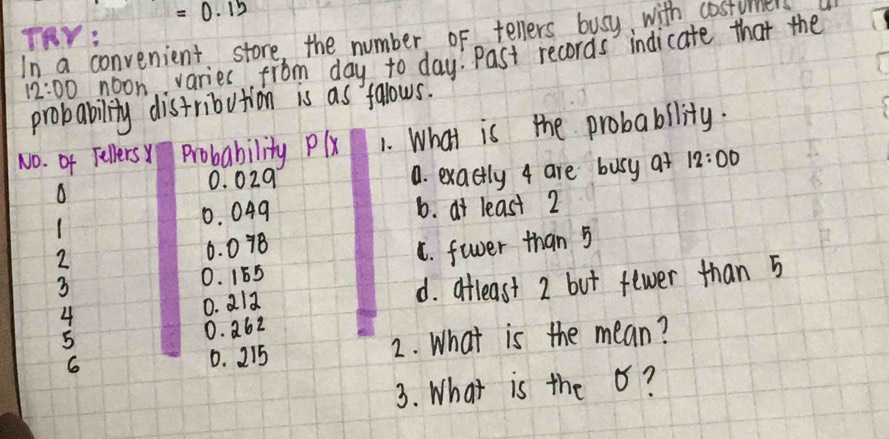 = 0.15
TRY:
In a convenient store, the number of tellers busy with costumers at
12:00 noon, varies from day to day. Past records indicate that the
probability distribution is as fallows.
No. of Tellers X Probability P(x
0 0.029
1 0.049
2 0.078
3 0.155
4 0.212
5 0.262
6 0.215
1. What is the probability.
a. exactly 4 are busy at 12:00
b. at least 2
c. fewer than 5
d. atleast 2 but fewer than 5
2. What is the mean?
3. What is the σ?